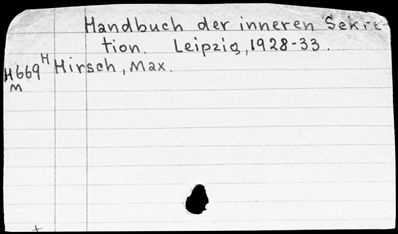 Handbuch der inneren Sekre-
tion. Leipzig, 1928-33.
H669 H Hirsch, Max.
m